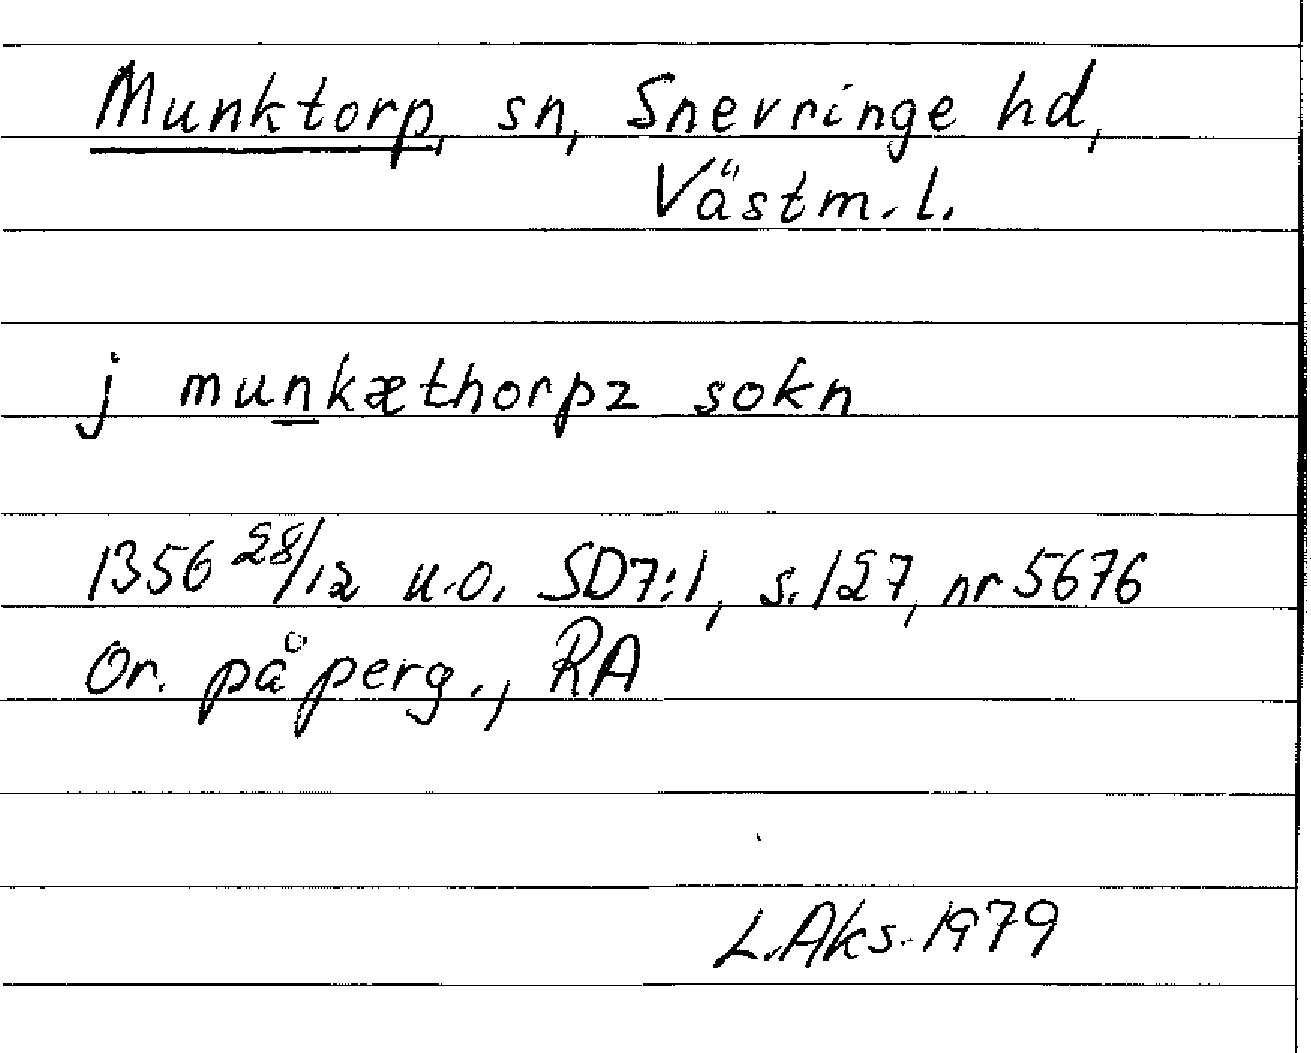 Munktorp, sn, Snevringe hd,
Västm. l.
j munkæthorpz sokn
1356 28/12 u.o. SD7:1, s. 127, nr 5676
Or. på perg., RA
L.Aks. 1979